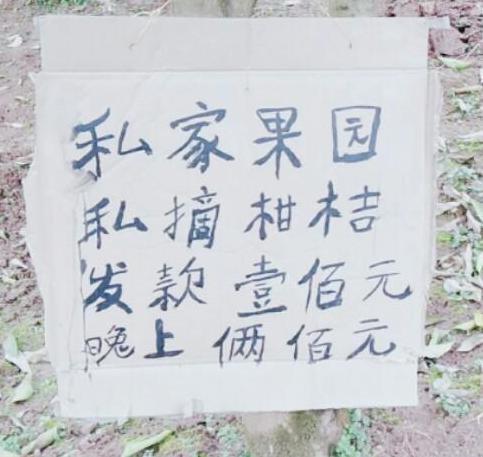 私家果园
私摘柑桔
发款壹佰元
晚上俩佰元